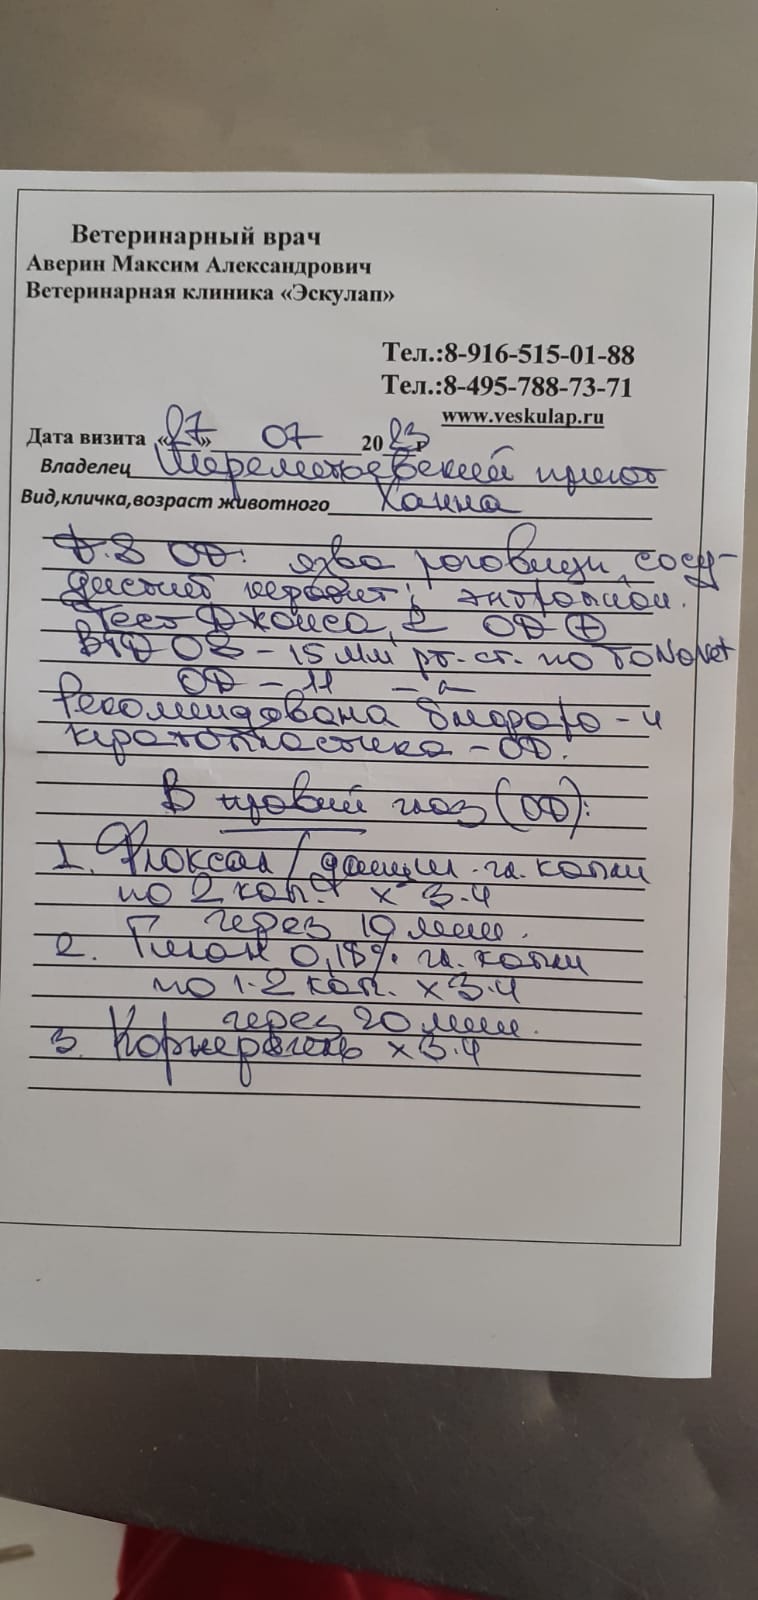 Ветеринарный врач
Аверин Максим Александрович
Ветеринарная клиника «Эскулап»
Тел.:8-916-515-01-88
Тел.:8-495-788-73-71
www.veskulap.ru
Дата визита «27» 07 2023
Владелец Шереметьевский приют
Вид,кличка,возраст животного Ханна
D.S OD: язва роговицы, сосу-
дистый кератит, энтропион.
Тест Джонса 2 OD ⊕
ВГД OS - 15 мм рт. ст. по TONOVet
OD - 11 -"-
Рекомендована блефаро- и
кератопластика - OD.
В правый глаз (OD):
1. Флоксал / гл. капли
по 2 кап. х 3.
через 10 мин.
2. Гилан 0,18% гл. капли
по 1-2 кап. х 3.
через 20 мин.
3. Корнерегель х 3.